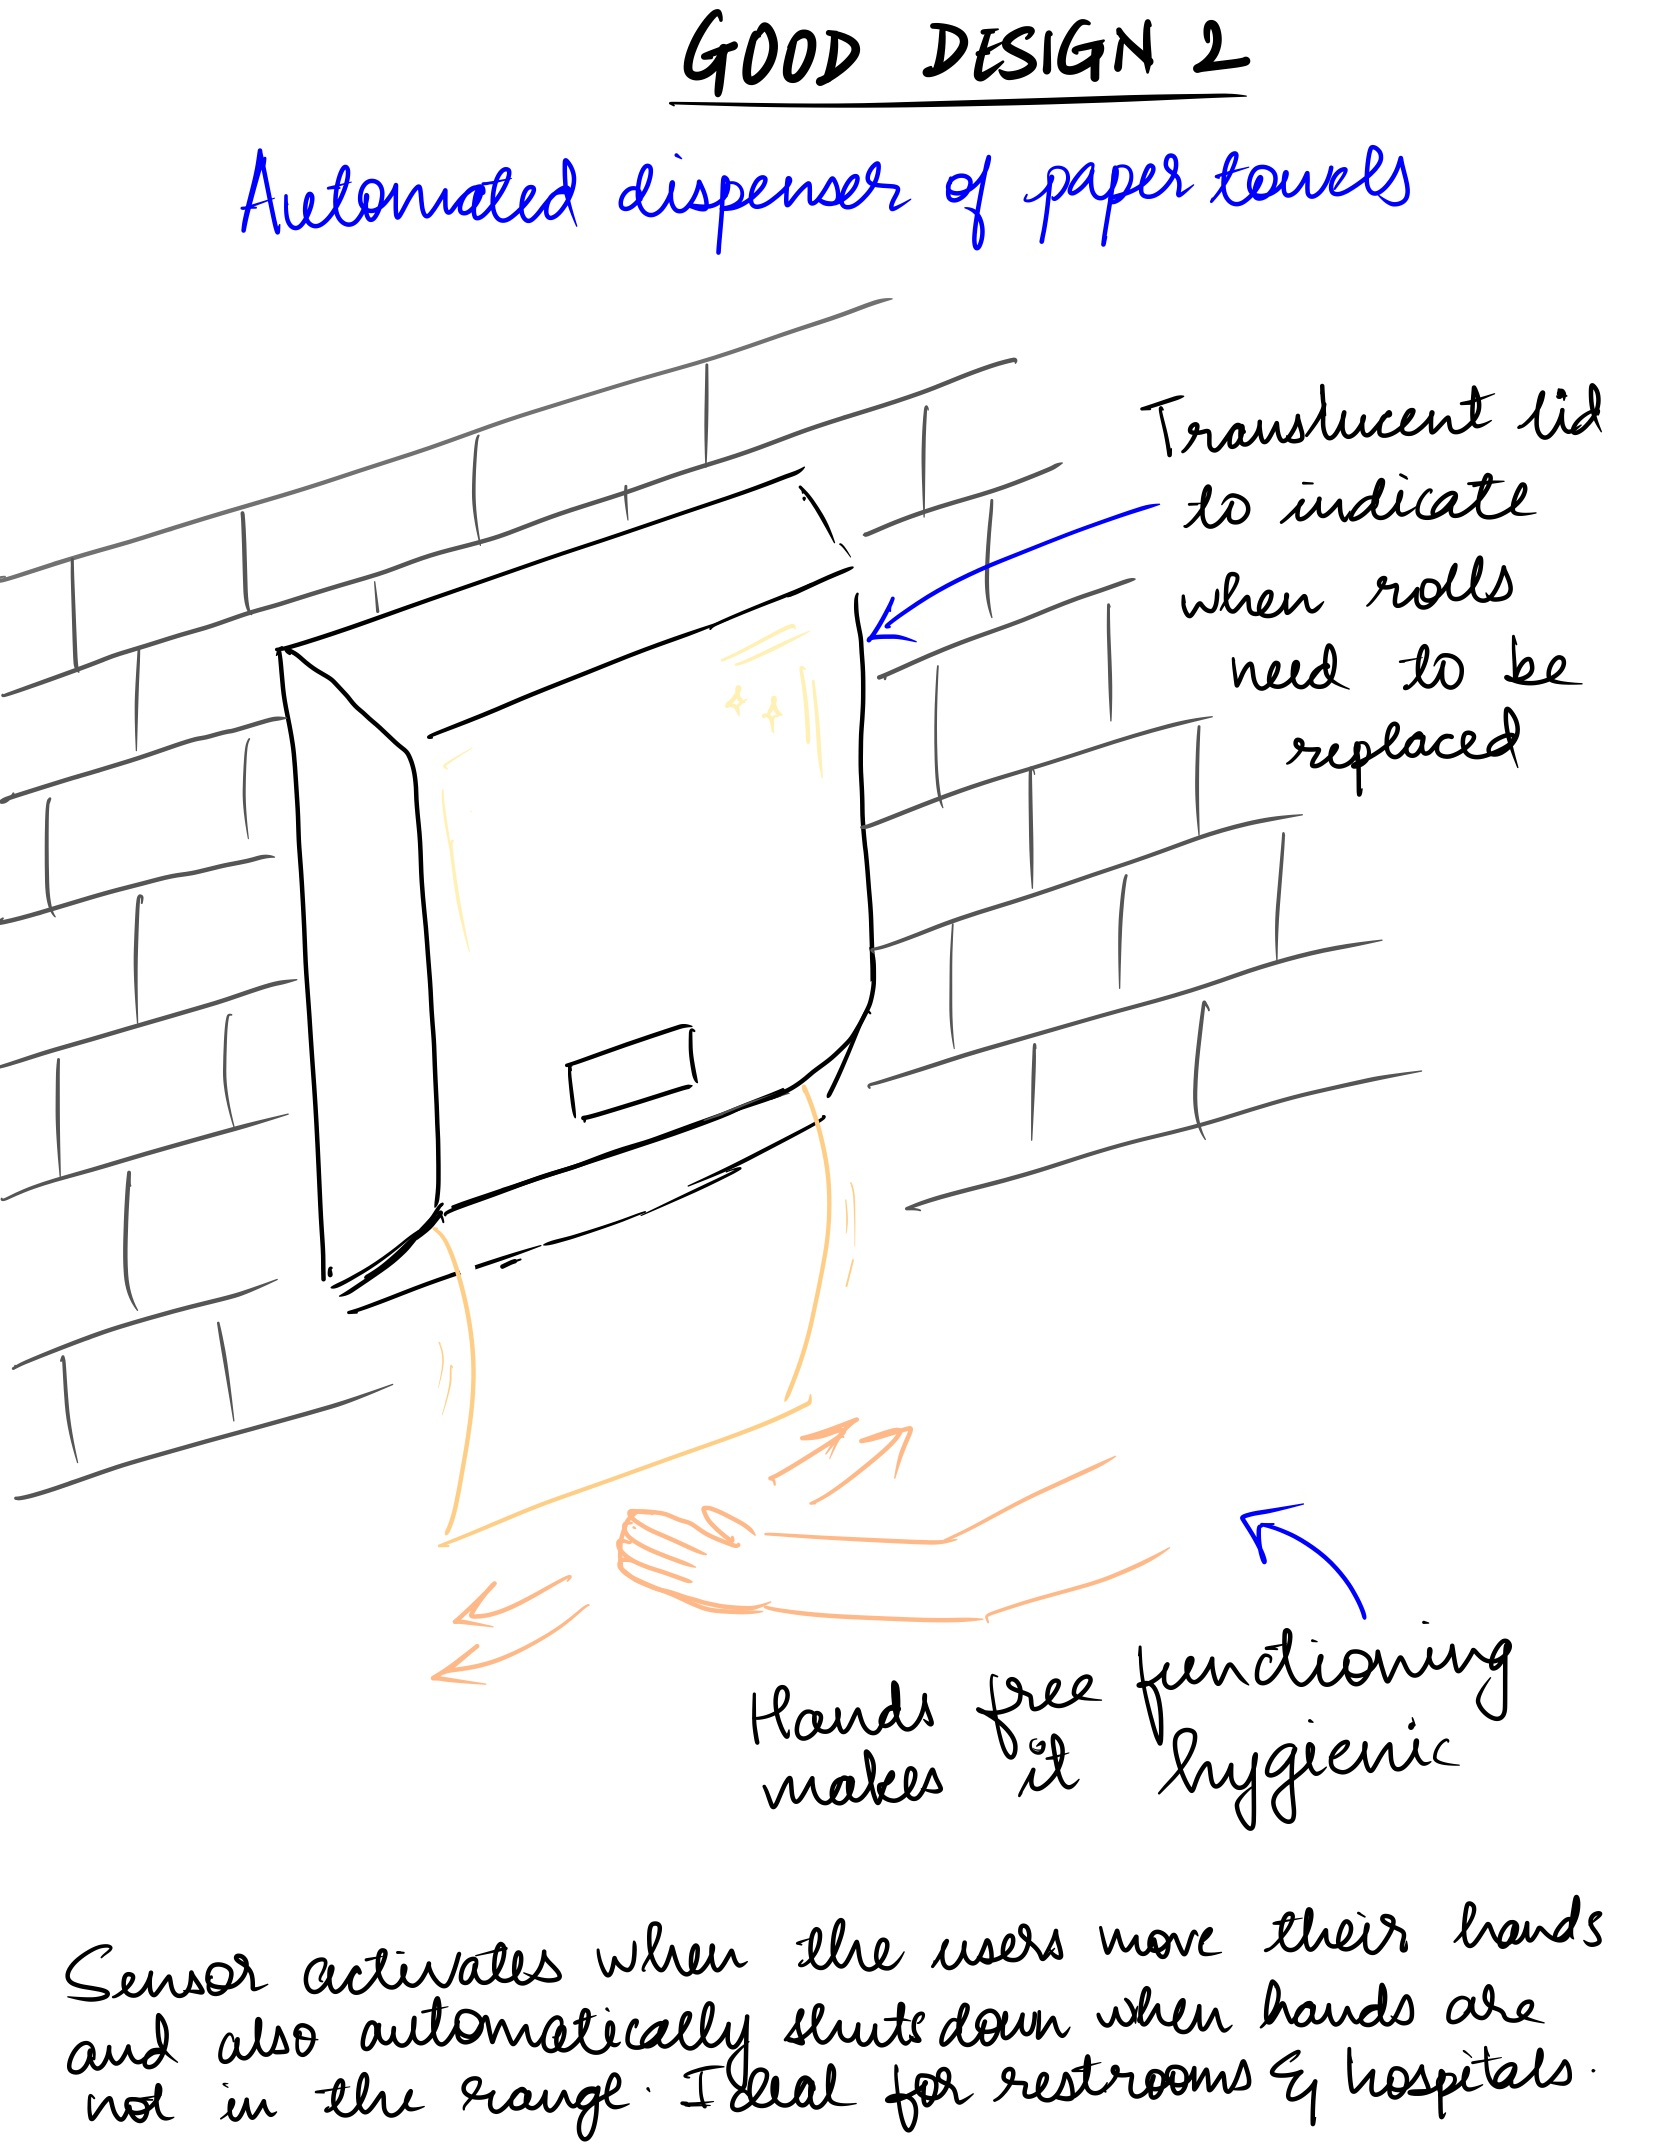 GOOD DESIGN 2
Automated dispenser of paper towels
Translucent lid
to indicate
when rolls
need to be
replaced
Hands free functioning
makes it hygienic
Sensor activates when the users move their hands
and also automatically shuts down when hands are
not in the range. Ideal for restrooms & hospitals.